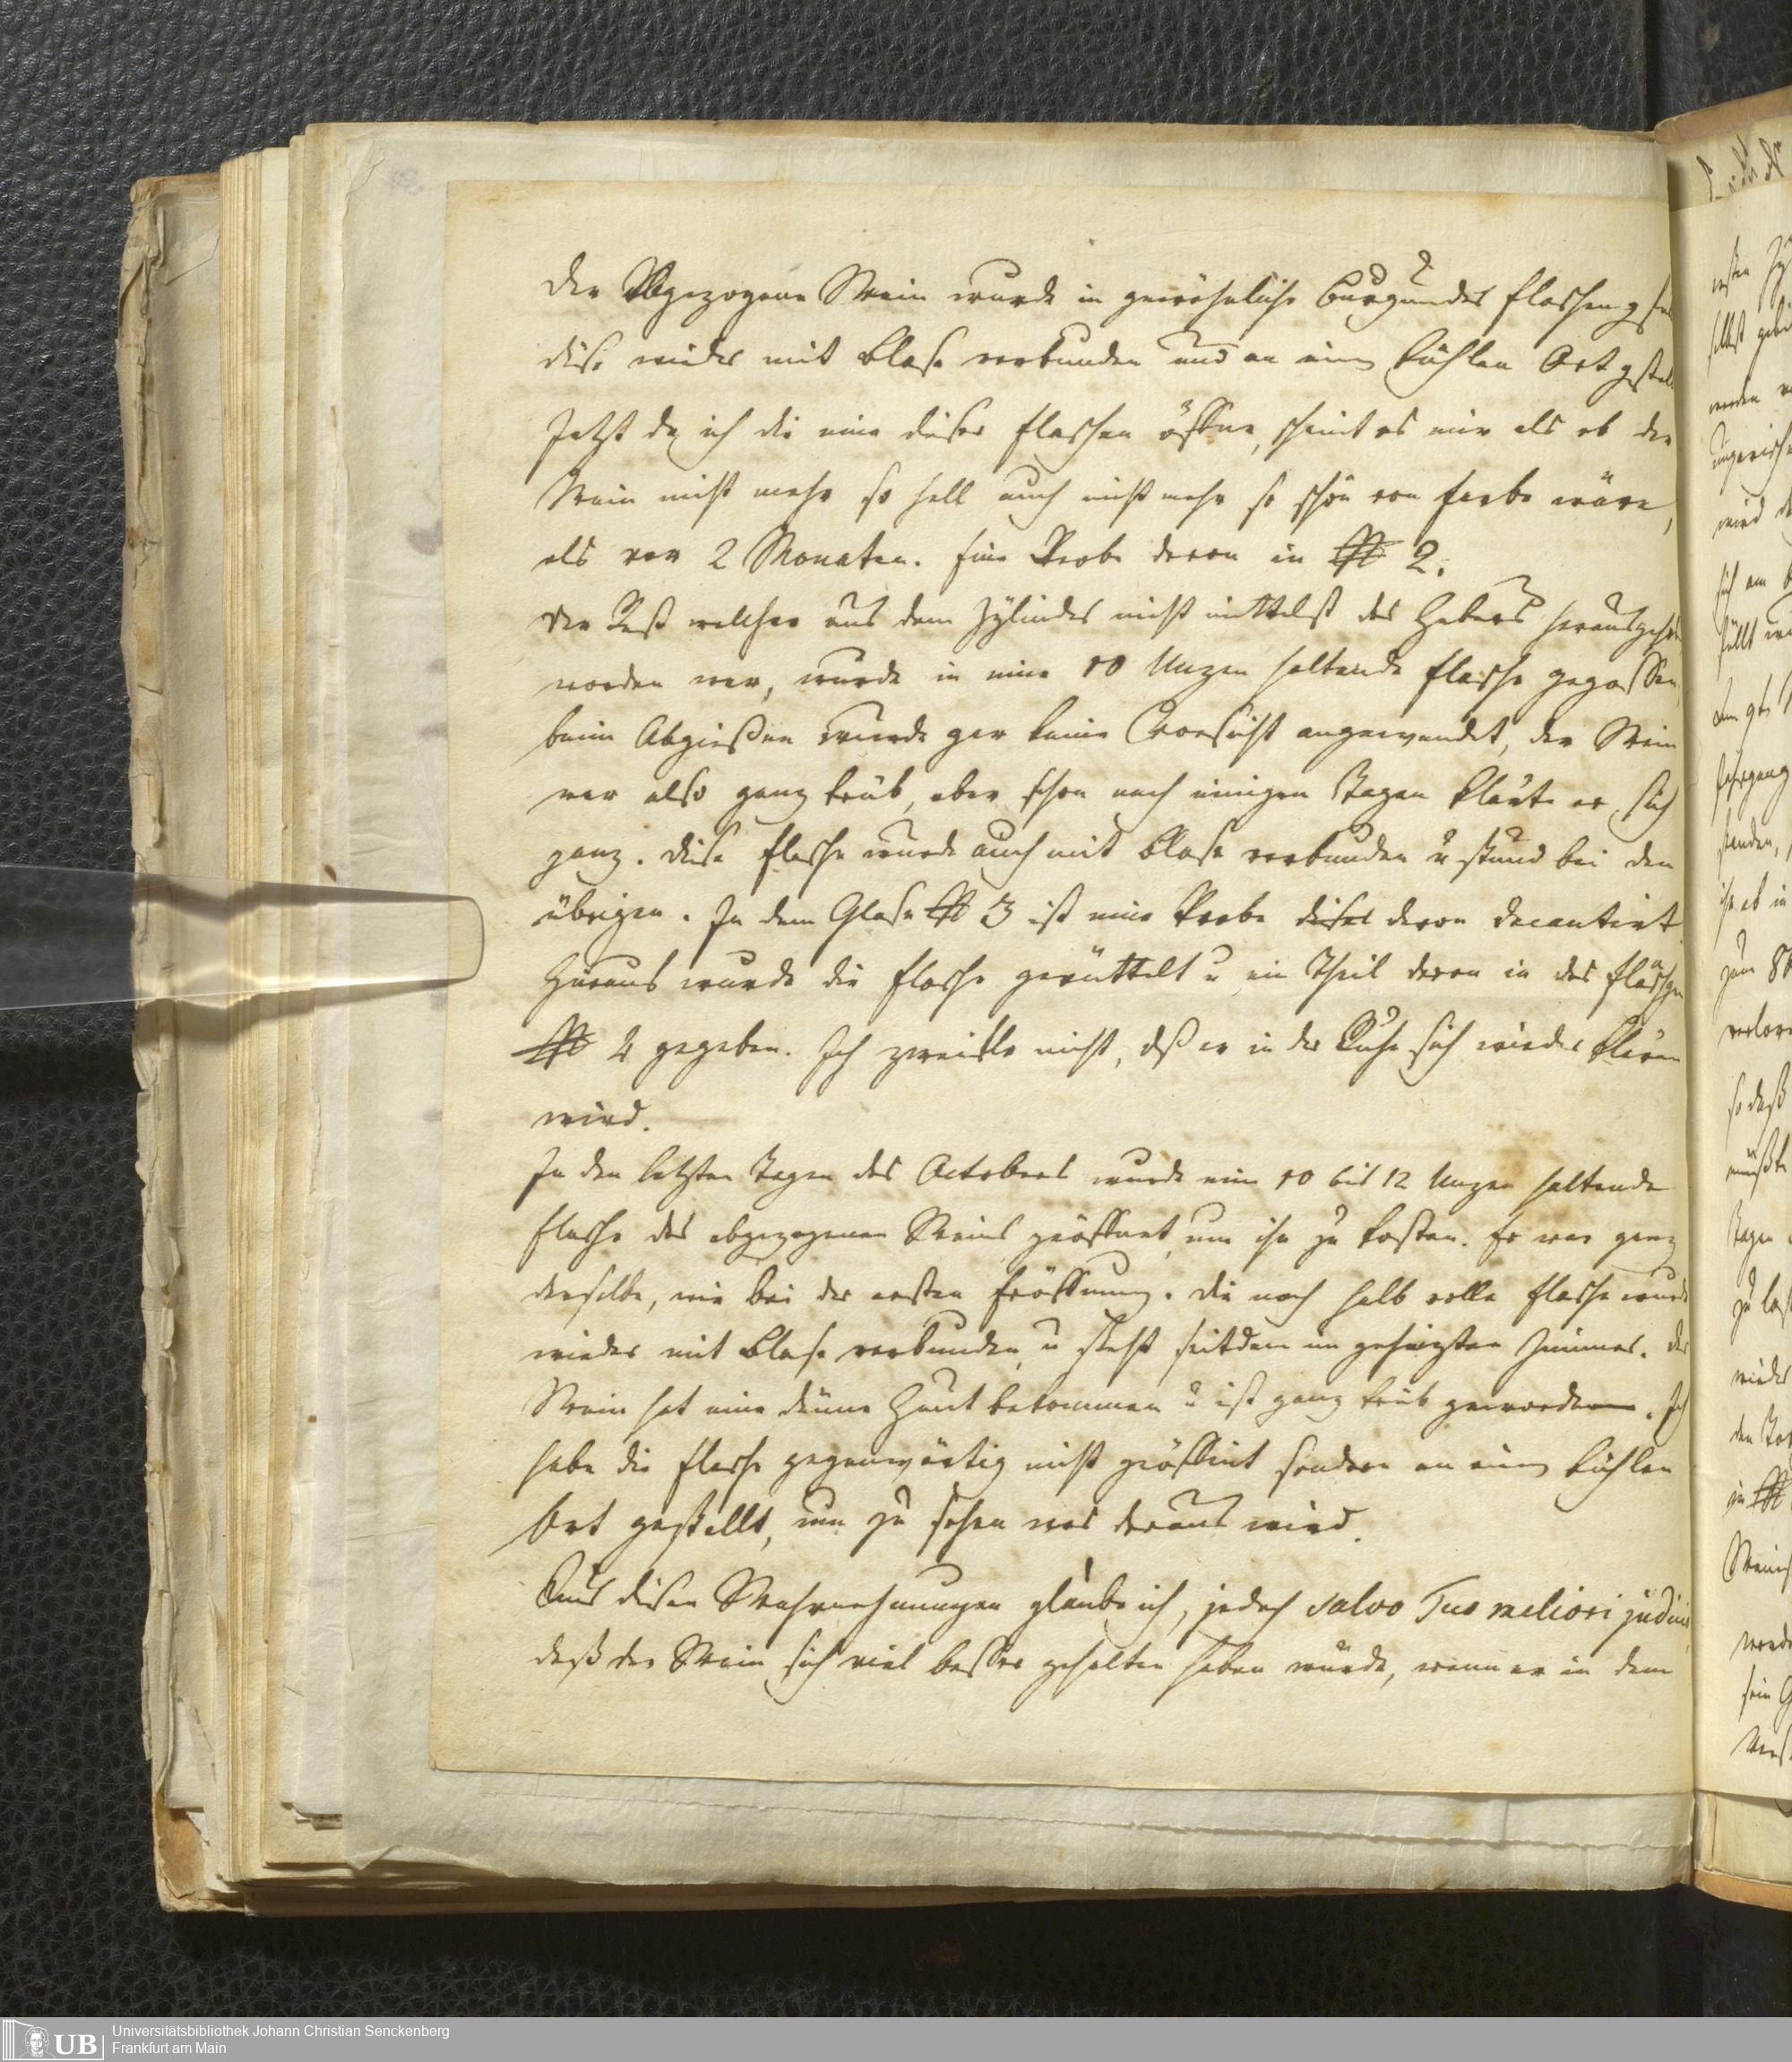 Der Abgezogene Wein wurde in gewöhnliche Burgunder Flaschen
diese wieder mit Blase verbunden und an einen kühlen Ort gestel
Jetzt da ich die eine dieser Flaschen öffne, scheint es mir als ob der
Wein nicht mehr so hell auch nicht mehr so schön von Farbe wäre,
als vor 2 Monaten. Eine Probe davon in № 2.
Der Rest welcher aus dem Zylinder nicht mittelst des Hebers
worden war, wurde in eine 10 Unzen haltende Flasche gegossen,
beim Abgießen wurde gar keine Vorsicht angewendet, der Wein
war also ganz trüb, aber schon nach einigen Tagen klärte er sich
ganz. Diese Flasche wurde auch mit Blase verbunden u stund bei den
übrigen. In dem Glase № 3 ist eine Probe dieses davon decantirt.
Hieraus wurde die Flasche gerüttelt u ein Theil davon in das
№ 4 gegeben. Ich zweifle nicht, dß er in der Ruhe sich wieder klären
wird.
In den letzten Tagen des Octobers wurde eine 10 bis 12 Unzen haltende
Flasche des abgezogenen Weins geöffnet, um ihn zu kosten. Er war ganz
derselbe, wie bei der ersten Eröffnung. Die noch halb volle Flasche wurde
wieder mit Blase verbunden, u steht seitdem im geheizten Zimmer. Der
Wein hat eine dünne Haut bekommen u ist ganz trüb geworden. Ich
habe die Flasche gegenwärtig nicht geöffnet sondern an einen kühlen
Ort gestellt, um zu sehen was daraus wird.
Aus diesen Wahrnehmungen glaube ich, jedoch salvo Tuo meliori
daß der Wein sich viel besser gehalten haben würde, wenn er in dem
UB
Universitätsbibliothek Johann Christian Senckenberg
Frankfurt am Main